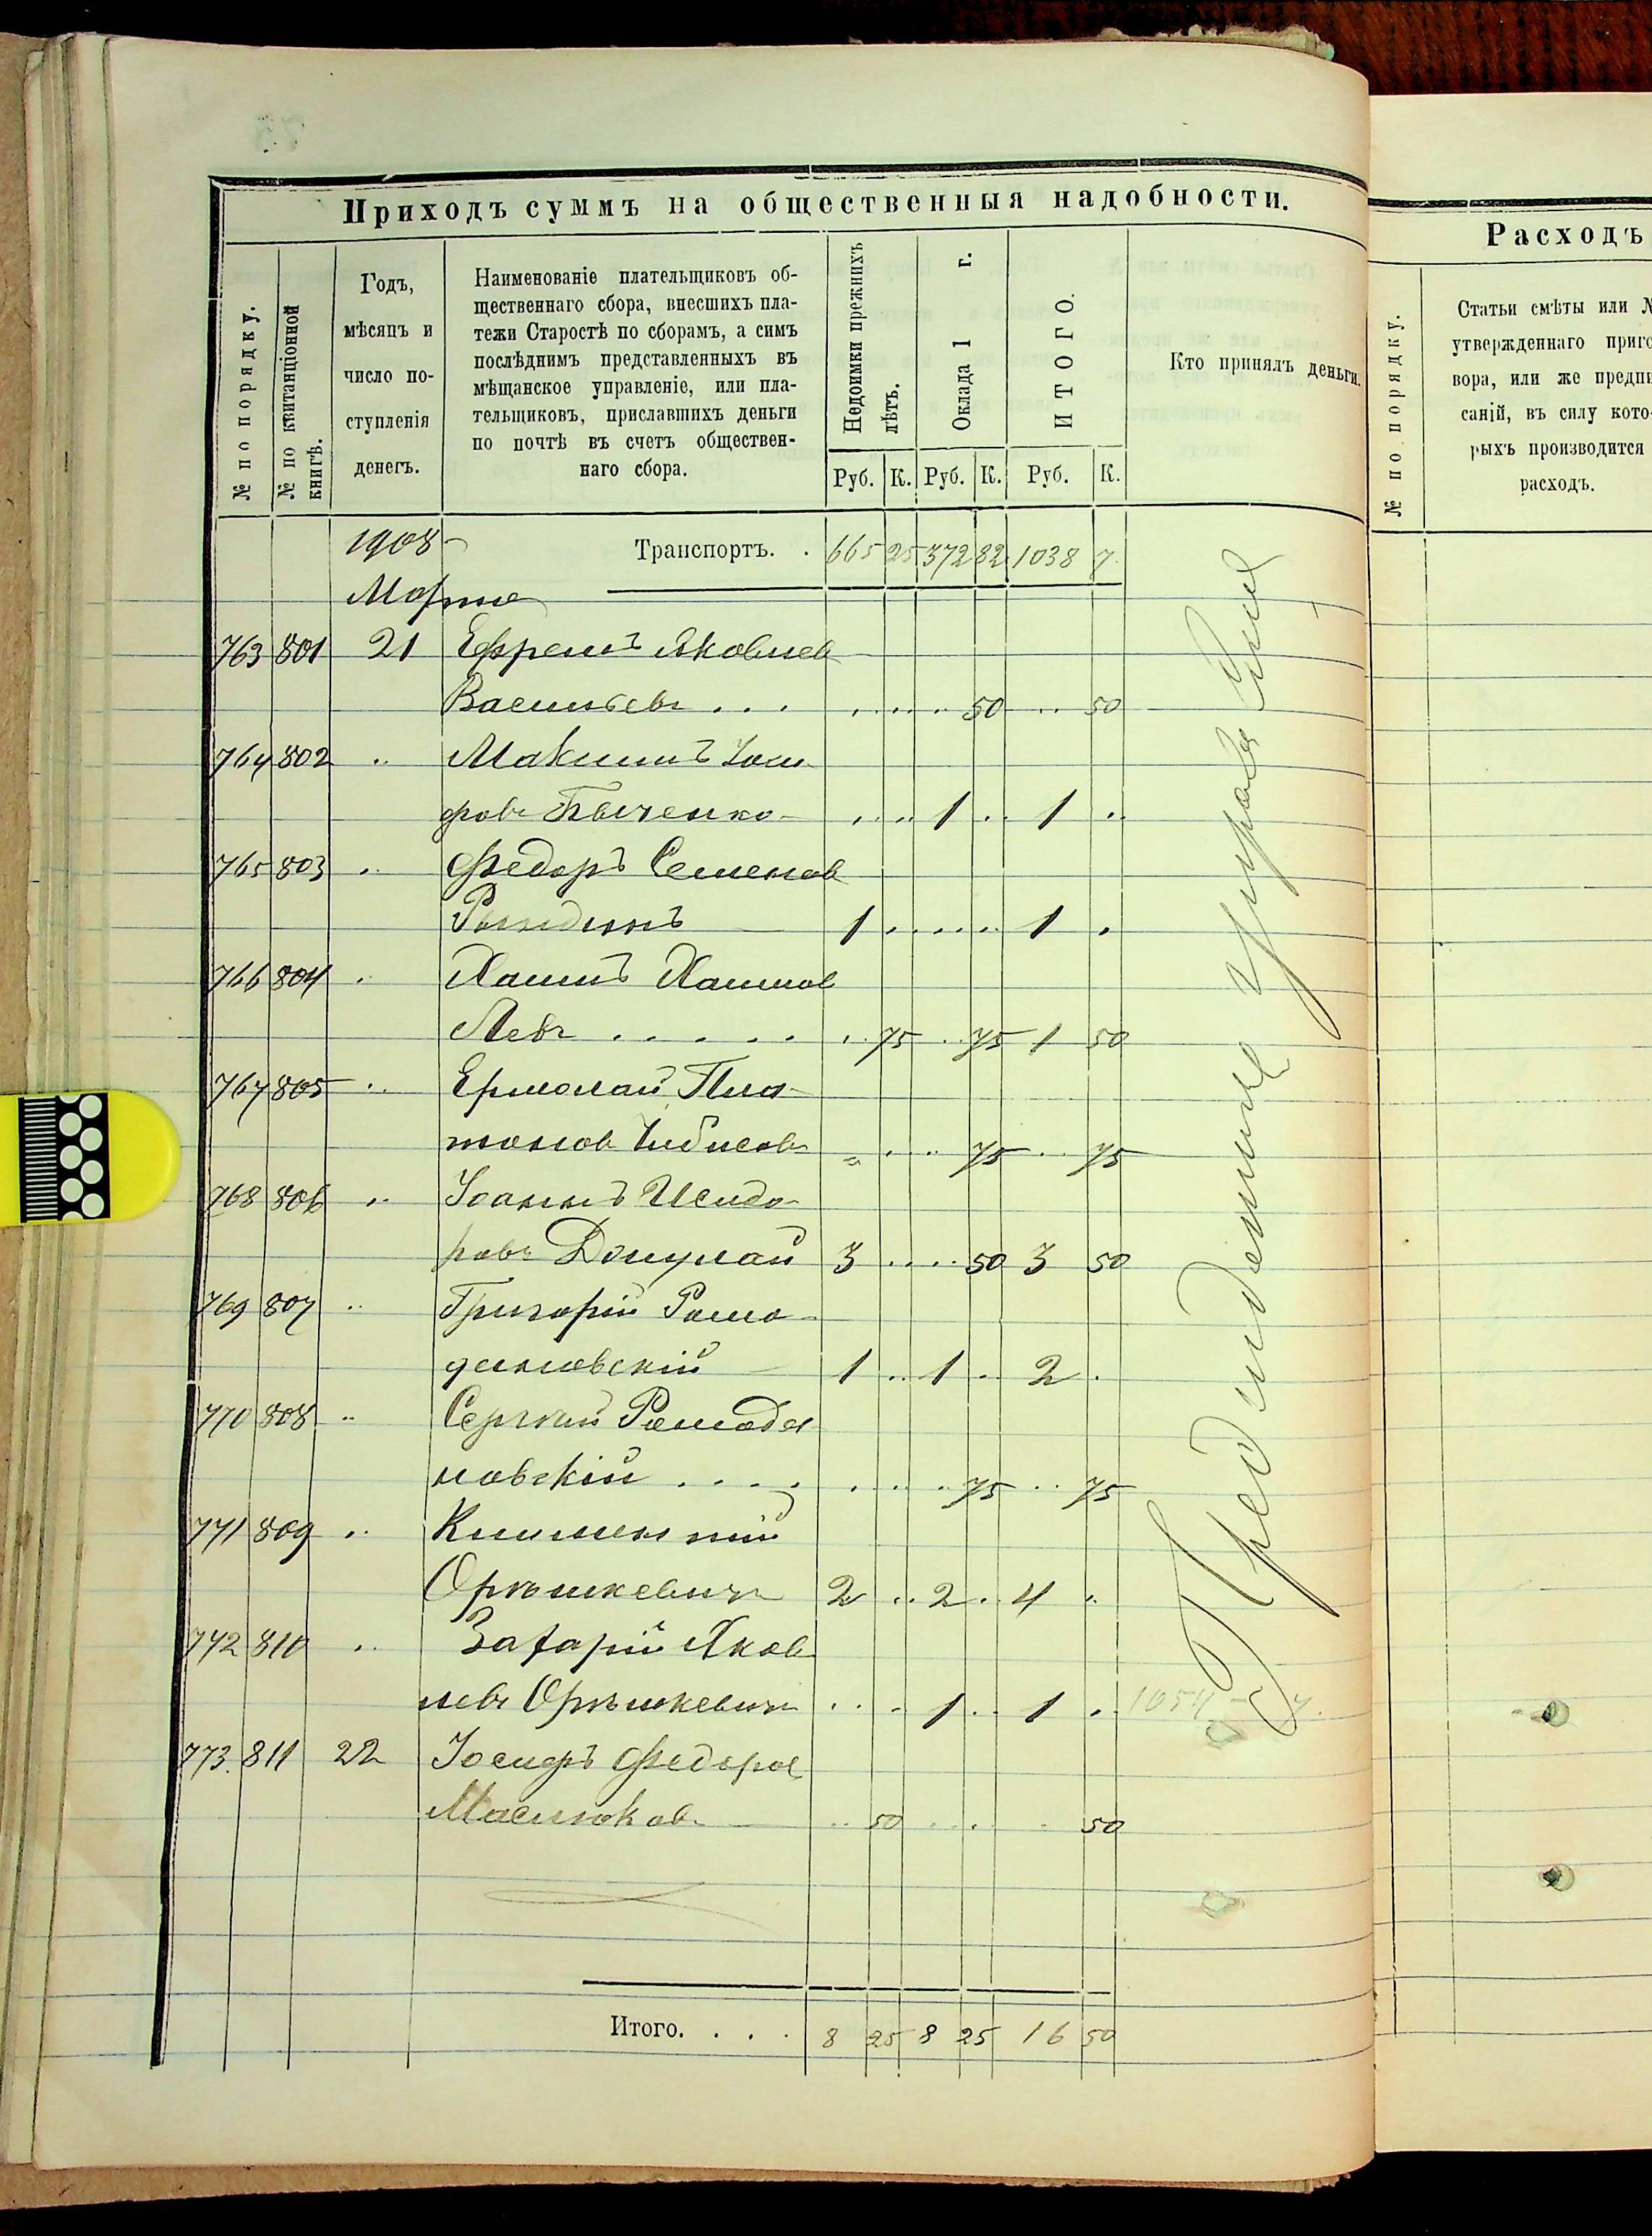 Приходъ суммъ на общественныя надобности.
№ по порядку.
№ по квитанціонной книгѣ.
Годъ, мѣсяцъ и число поступленія денегъ.
Наименованіе плательщиковъ об-
щественнаго сбора, внесшихъ пла-
тежи Старостѣ по сборамъ, а симъ
послѣднимъ представленныхъ въ
мѣщанское управленіе, или пла-
тельщиковъ, приславшихъ деньги
по почтѣ въ счетъ обществен-
наго сбора.
Недоимки прежнихъ лѣтъ.
Оклада 1 г.
ИТОГО.
Кто принялъ деньги.
Руб. К. Руб. К. Руб. К.
1908 Транспортъ. . 665 25 372 82 1038 7
Марта
763 801 21 Ефремъ Яковлев
Васильевъ . . . 50 50
764 802 .. Максимъ
Быченко 1 .. 1 ..
765 803 .. Федоръ Семенов
1 1 .
766 804 .. Хаимъ Хаимов
Левъ . . . . . 75 75 1 50
767 805 .. Ермолай Пла-
тонов Чибисовъ 75 75
768 806 .. Іоаннъ Исидо-
ровъ 3 50 3 50
769 807 .. Григорій Рома-
дановскій 1 .. 1 .. 2 .
770 808 .. Сергѣй Ромода
новскій . . . . 75 75
771 809 .. Климентій
Орѣшкевичъ 2 .. 2 .. 4 ..
772 810 .. Захарій Яков
левъ Орѣшкевичъ 1 .. 1 . 1054 - 7.
773. 811 22 Іосифъ Федоров
Маслюков 50 50
Итого. . . . 8 25 8 25 16 50
Расходъ
№ по порядку.
Статьи смѣты или №
утвержденнаго приго
вора, или же предпи
саній, въ силу кото-
рыхъ производится
расходъ.